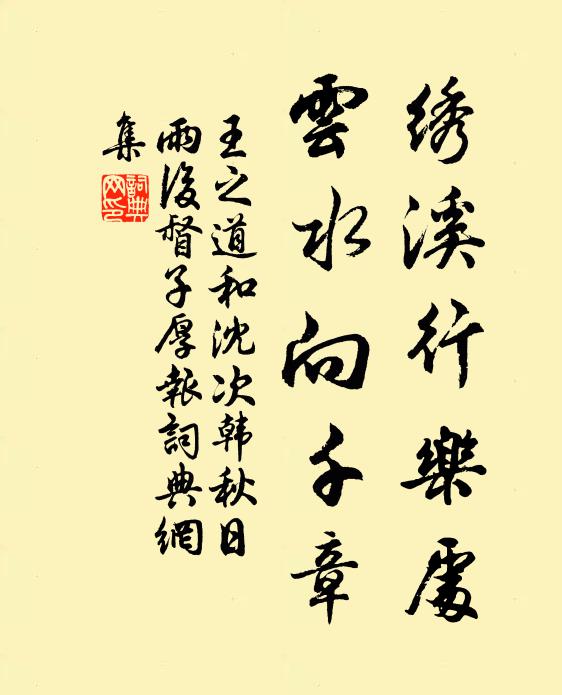 绣溪行樂處
雲水向千章
王之道和沈次韩秋日
雨後督子厚報詞典網
集
詞典網印